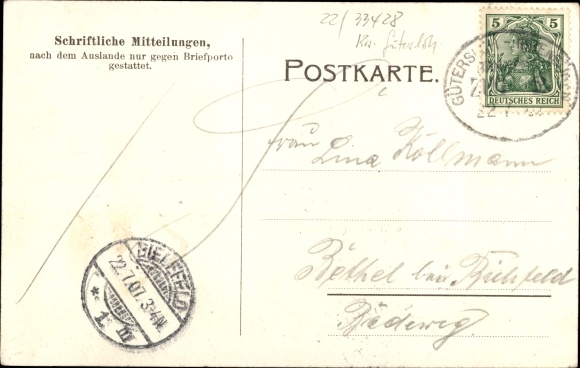 22/33428
Kr. Gütersloh
Schriftliche Mitteilungen,
nach dem Auslande nur gegen Briefporto
gestattet.
POSTKARTE.
5 5
DEUTSCHES REICH
GÜTERSL
Z
22
Frau Lina Kollmann
BIELEFELD
22.7.07. 3-4N.
* 1. m
Bethel bei Bielefeld